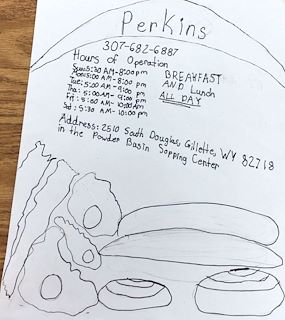 Perkins
307-682-6887
Hours of Operation
Sun: 5:30 AM-8:00 pm
Mon: 5:00 AM-8:00 pm
Tue: 5:00 AM-9:00 pm
Thu: 5:00 AM-9:00 pm
Fri: 5:00 AM-10:00 pm
Sat: 5:30 AM-10:00 pm
BREAKFAST
AND Lunch
ALL DAY
Address: 2510 South Douglas, Gillette, WY 82718
in the Powder Basin Sopping Center